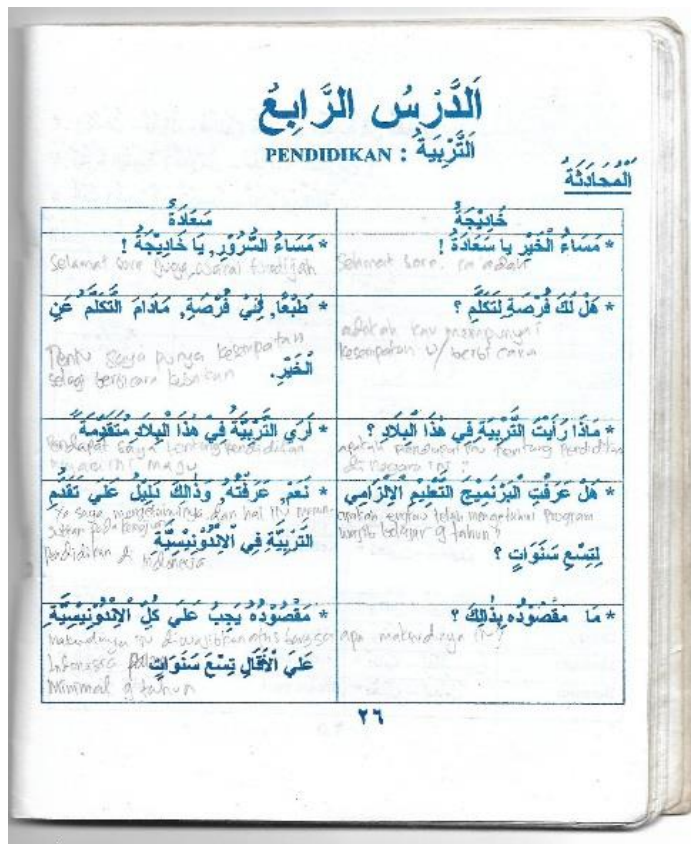 اَلدَّرْسُ الرَّابِعُ
اَلتَّرْبِيَةُ : PENDIDIKAN
اَلْمُحَادَثَةُ
خَادِيْجَةُ
سَعَادَةُ
* مَسَاءُ الْخَيْرِ يَا سَعَادَةُ !
Selamat sore.
* مَسَاءُ السُّرُوْرِ, يَا خَادِيْجَةُ !
Selamat sore juga
* هَلْ لَكَ فُرْصَةٌ لِتَكَلَّمِ ؟
adakah kau mempunyai
kesempatan u/ berbicara
* طَبْعًا, لِيْ فُرْصَةٌ, مَادَامَ التَّكَلُّمُ عَنِ
الْخَيْرِ.
Tentu saya punya kesempatan
selagi berbicara kebaikan
* مَاذَا رَأَيْتَ التَّرْبِيَةَ فِي هٰذَا الْبِلَادِ ؟
apakah pendapat mu tentang Pendidikan
di negara ini ?
* اَرَي التَّرْبِيَةَ فِيْ هٰذَا الْبِلَادِ مُتَقَدِّمَةً
Pendapat saya tentang Pendidikan
negara ini maju
* هَلْ عَرَفْتِ الْبَرْنَمِيْجَ التَّعْلِيْمِ الْإِلْزَامِي
لِتِسْعِ سَنَوَاتٍ ؟
apakah engkau telah mengetahui Program
wajib belajar 9 tahun ?
* نَعَمْ, عَرَفْتُهُ, وَذَالِكَ دَلِيْلُ عَلَي تَقَدُّمِ
التَّرْبِيَّةِ فِي الْاِنْدُوْنِيْسِيَّةِ
Ya saya mengetahuinya dan hal itu
Pendidikan di Indonesia
* مَا مَقْصُوْدُه بِذٰالِكَ ؟
apa maksudnya itu ?
* مَقْصُوْدُهُ يَجِبُ عَلَي كُلِّ الْاِنْدُوْنِيْسِيَّةِ
عَلَيَ الْأَقَالِ تِسْعَ سَنَوَاتٍ
maksudnya itu diwajibkan atas bangsa
Indonesia
Minimal 9 tahun
٢٦